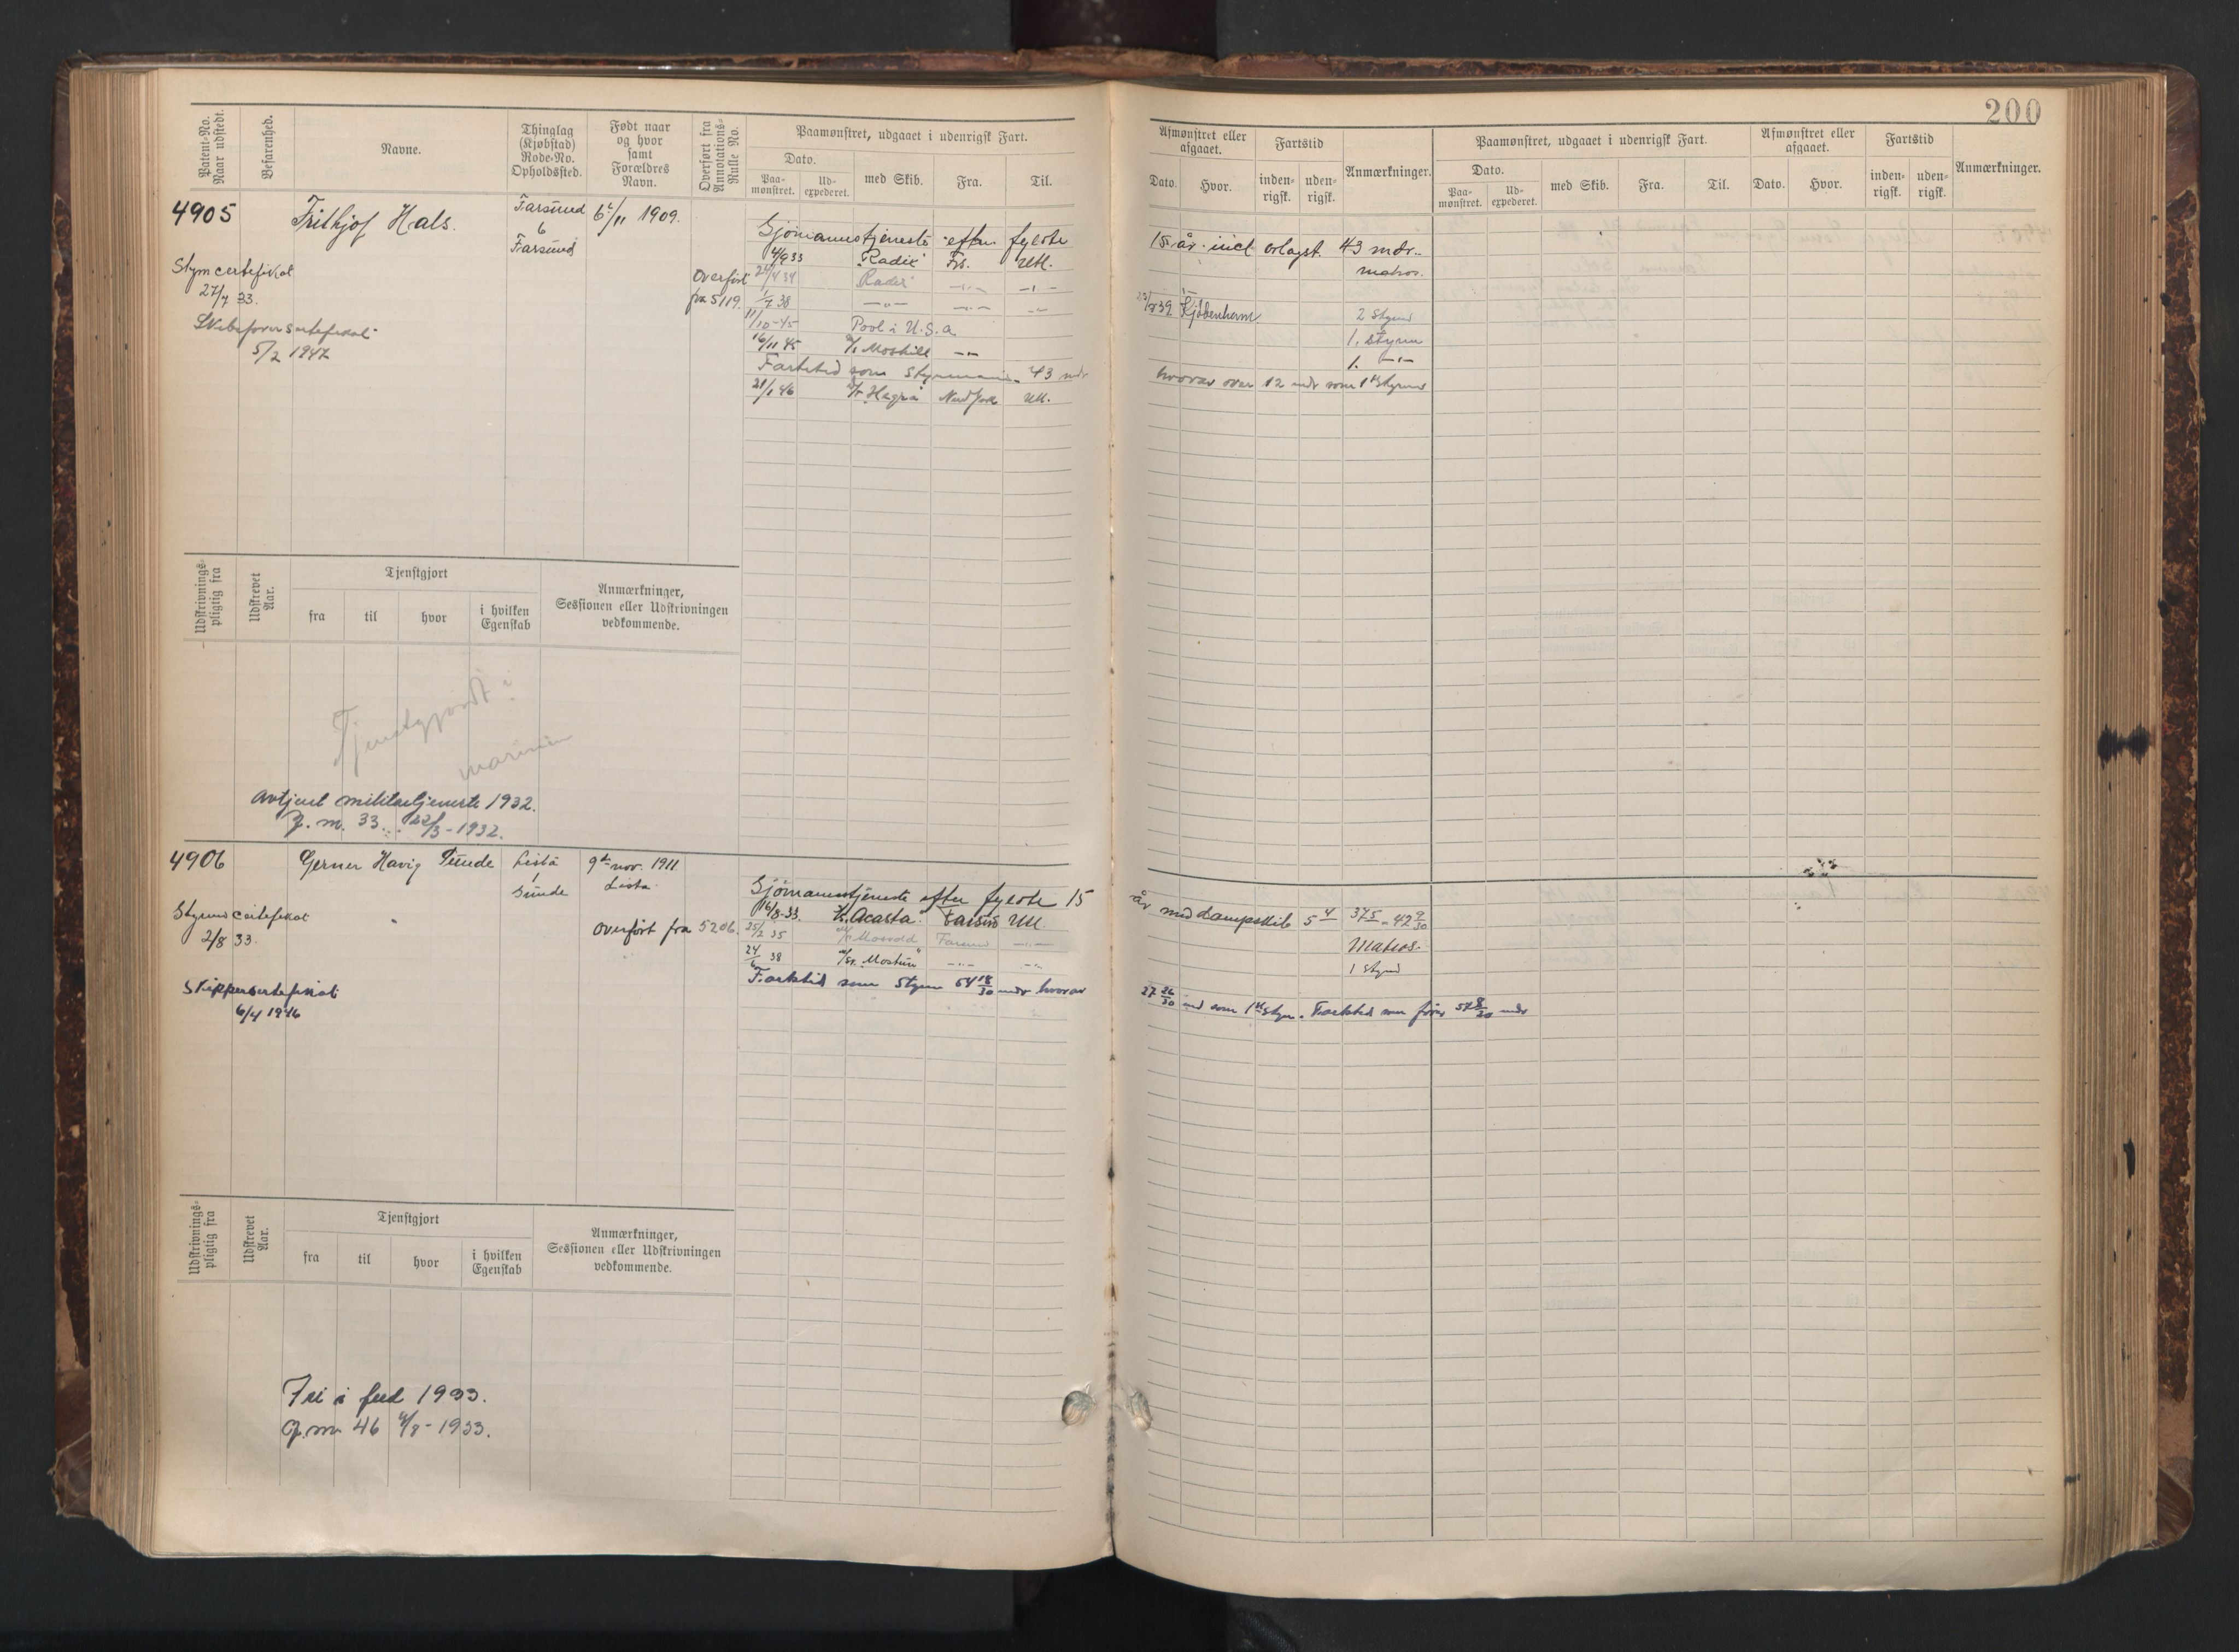 200
Patent-No.
Naar udstedt.
Befarenhed.
Navne.
Thinglag
(Kjøbstad)
Rode-No.
Opholdssted.
Født naar
og hvor
samt
Forældres
Navn.
Overført fra
Annotations-
Rulle No.
Paamønstret, udgaaet i udenrigsk Fart.
Dato.
Paa-
mønstret.
Ud-
expederet.
med Skib.
Fra.
Til.
Afmønstret eller
afgaaet.
Dato.
Hvor.
Fartstid
inden-
rigsk.
uden-
rigsk.
Anmærkninger.
Paamønstret, udgaaet i udenrigsk Fart.
Dato.
Paa-
mønstret.
Ud-
expederet.
med Skib.
Fra.
Til.
Afmønstret eller
afgaaet.
Dato.
Hvor.
Fartstid
inden-
rigsk.
uden-
rigsk.
Anmærkninger.
4905
Frithjof Hals.
Farsund
6
Farsund
6/11 1909.
Styrmcertefikat
27/7 33.
5/2 1947
Overført
fra 5119.
Sjømannstjeneste efter fyldte
15 år incl orlogst. 43 mdr.
4/9 33 "Radix" Fs. Utl.
matros.
34 Radix -"- -"-
1/7 38 -"- -"- -"-
39 Kjøbenhavn
2 Styrm
11/10-45 Pool i U.S.A
1. styrm
16/11 45 Moshill -"-
1. -"-
Fartstid som Styrmann. 43 mdr
hvorav over 12 mdr som 1ste Styrmd
21/1 46 New York Utl.
Udskrivnings-
pligtig fra
Udskrevet
Aar.
Tjenstgjort
fra
til
hvor
i hvilken
Egenskab
Anmærkninger,
Sessionen eller Udskrivningen
vedkommende.
Tjenstgjordt i
marinen
Avtjent militærtjeneste 1932.
J. m. 33. 22/3-1932.
4906
Gerner Havig Sunde
Lista
1
Sunde
9de nov. 1911
Lista.
Styrmd certefikat
2/8 33.
overført fra 5206.
6/4 1946
Sjømannstjeneste efter fyldte 15
år med dampskib 5 4 37 5 = 42 9/30
16/8-33. "Acasta" Farsund Utl.
Matros.
25/2 35 Mosvold Farsund -"-
1 styrmd
24/6 38 -"- -"-
Fartstid som Styrm 54 18/30 mdr hvorav
27 26/30 md som 1ste Styrm. Fartstid som fører 57 8/30 mdr
Udskrivnings-
pligtig fra
Udskrevet
Aar.
Tjenstgjort
fra
til
hvor
i hvilken
Egenskab
Anmærkninger,
Sessionen eller Udskrivningen
vedkommende.
Fri i fred 1933.
J.m 46 4/8-1933.